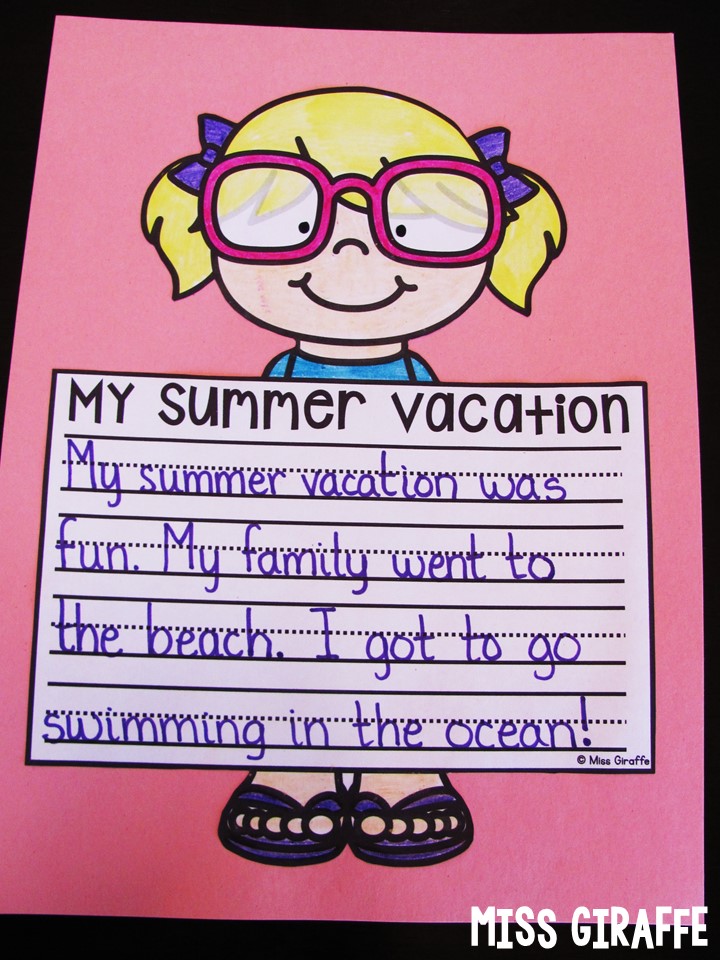 My Summer Vacation
My summer vacation was
fun. My family went to
the beach. I got to go
swimming in the ocean!
© Miss Giraffe
MISS GIRAFFE